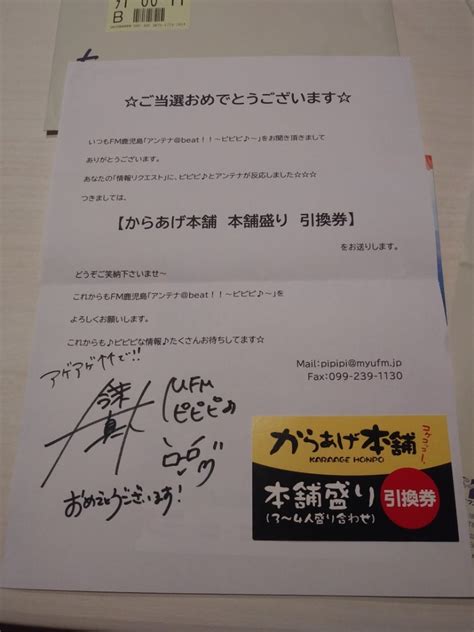 B
☆ご当選おめでとうございます☆
いつもFM鹿児島「アンテナ@beat！！～ピピピ♪～」をお聞き頂きまして
ありがとうございます。
あなたの「情報リクエスト」に、ピピピ♪とアンテナが反応しました☆☆☆
つきましては、
【からあげ本舗　本舗盛り　引換券】
をお送りします。
どうぞご笑納下さいませ～
これからもFM鹿児島「アンテナ@beat！！～ピピピ♪～」を
よろしくお願いします。
これからも♪ピピピな情報♪たくさんお待ちしてます☆
Mail:pipipi@myufm.jp
Fax:099-239-1130
アゲアゲ竹で!!
μFM
ピピピ♪
おめでとうございます!
からあげ本舗
コケコッコー!
KARAAGE HONPO
本舗盛り
(3～4人盛り合わせ)
引換券